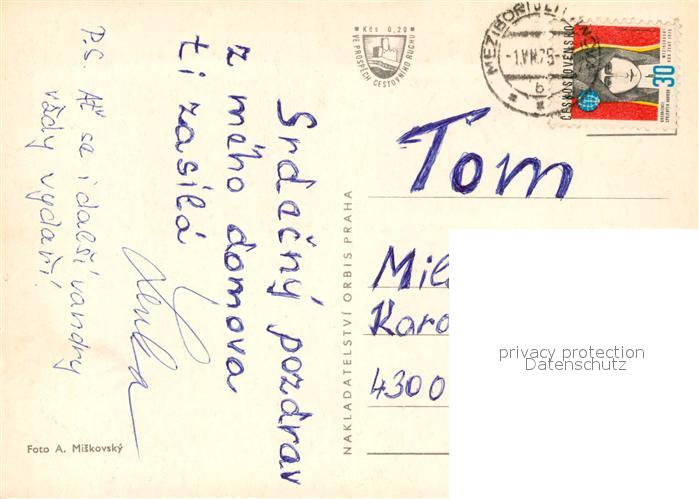 Srdačný pozdrav
z mého domova
ti zasílá
Lenka
P.S. Ať se i další vandry
vždy vydaří!
Foto A. Miškovský
NAKLADATELSTVÍ ORBIS PRAHA
Kčs 0,20
VE PROSPĚCH CESTOVNÍHO RUCHU
MEZIBOŘÍ
-1.VII.75-
b
ČESKOSLOVENSKO
30
Tom
Mil
Karo
4300
privacy protection
Datenschutz